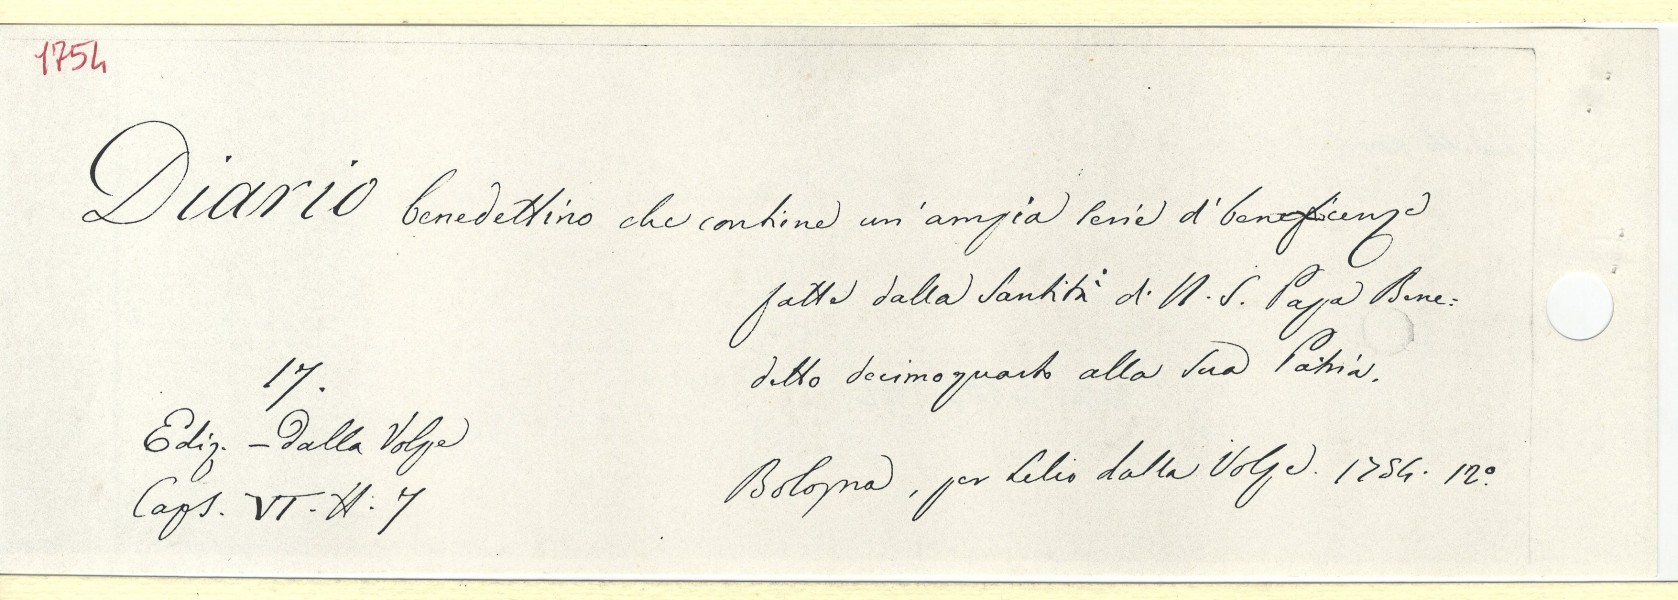 1754
Diario benedettino che contiene un'ampia serie d'beneficenze
fatte dalla Santità di N. S. Papa Bene=
detto decimoquarto alla sua Patria.
17.
Ediz. - Dalla Volpe
Caps. VI. N. 7
Bologna, per Lelio dalla Volpe. 1754. 12°.